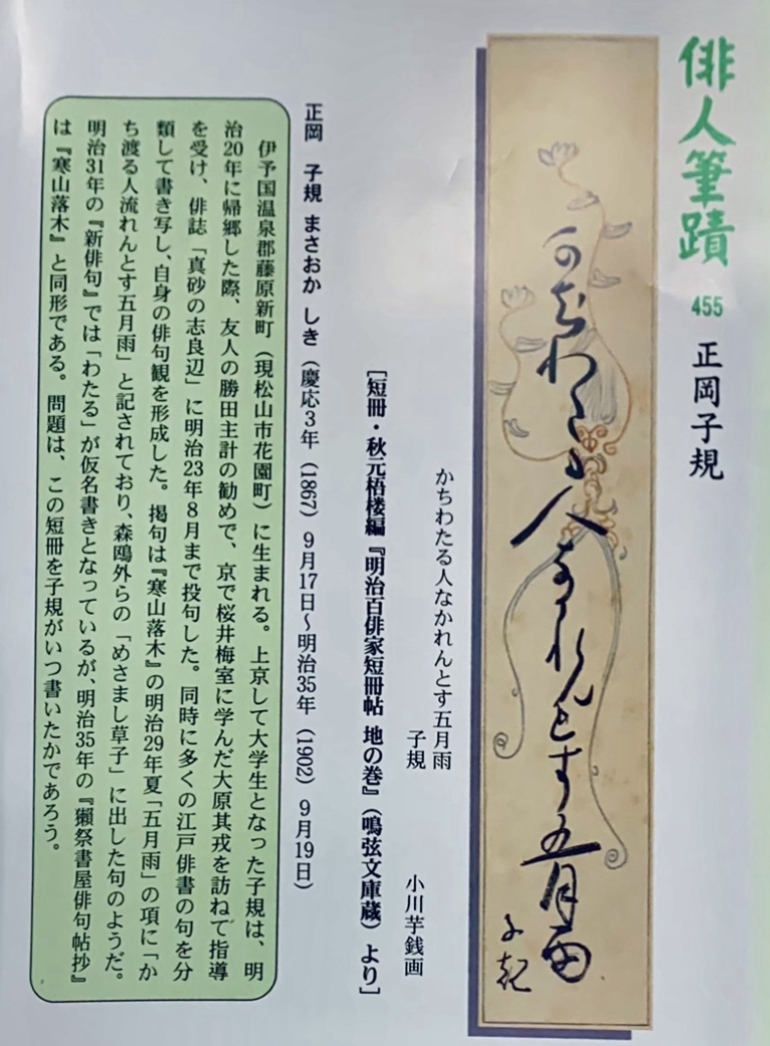 俳人筆蹟 455 正岡子規
かちわたる人なかれんとす五月雨
子規
小川芋銭画
［短冊・秋元梧楼編『明治百俳家短冊帖 地の巻』（鳴弦文庫蔵）より］
正岡 子規 まさおか しき（慶応3年（1867）9月17日〜明治35年（1902）9月19日）
伊予国温泉郡藤原新町（現松山市花園町）に生まれる。上京して大学生となった子規は、明
治20年に帰郷した際、友人の勝田主計の勧めで、京で桜井梅室に学んだ大原其戎を訪ねて指導
を受け、俳誌「真砂の志良辺」に明治23年8月まで投句した。同時に多くの江戸俳書の句を分
類して書き写し、自身の俳句観を形成した。掲句は『寒山落木』の明治29年夏「五月雨」の項に「か
ち渡る人流れんとす五月雨」と記されており、森鴎外らの「めさまし草子」に出した句のようだ。
明治31年の『新俳句』では「わたる」が仮名書きとなっているが、明治35年の『獺祭書屋俳句帖抄』
は『寒山落木』と同形である。問題は、この短冊を子規がいつ書いたかであろう。
かちわたる人なかれんとす五月雨
子規